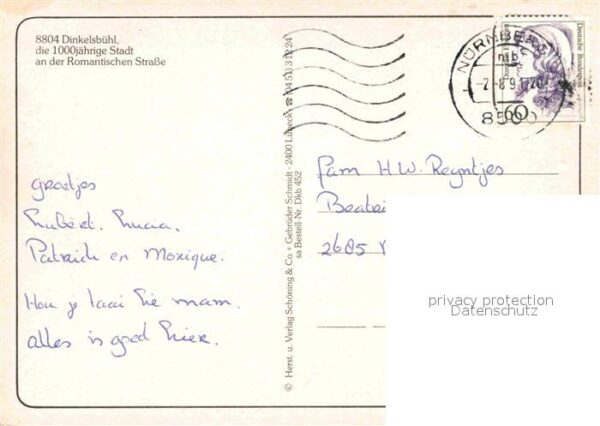 8804 Dinkelsbühl,
die 1000jährige Stadt
an der Romantischen Straße
NÜRNBERG
8500
60
Deutsche Bundespost
groetjes
Hubert, Lucia,
Patrick en Monique.
Hou je taai hie mam.
alles is goed hier.
© Herst. u. Verlag Schöning & Co + Gebrüder Schmidt · 2400 Lübeck · ☎ (04 51) 3 12 24
sa Bestell-Nr. Dkb 452
Fam H.W. Reyntjes
2685
privacy protection
Datenschutz